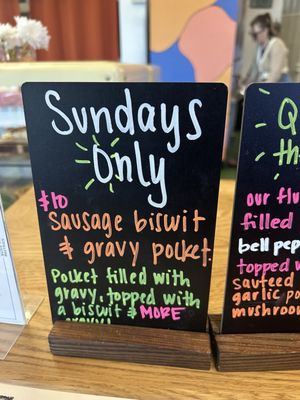 Sundays
Only
$10
Sausage biscuit
& gravy pocket.
Pocket filled with
gravy, topped with
a biscuit & MORE
gravy!
our flu
filled
bell pep
topped
sauteed
garlic po
mushroom